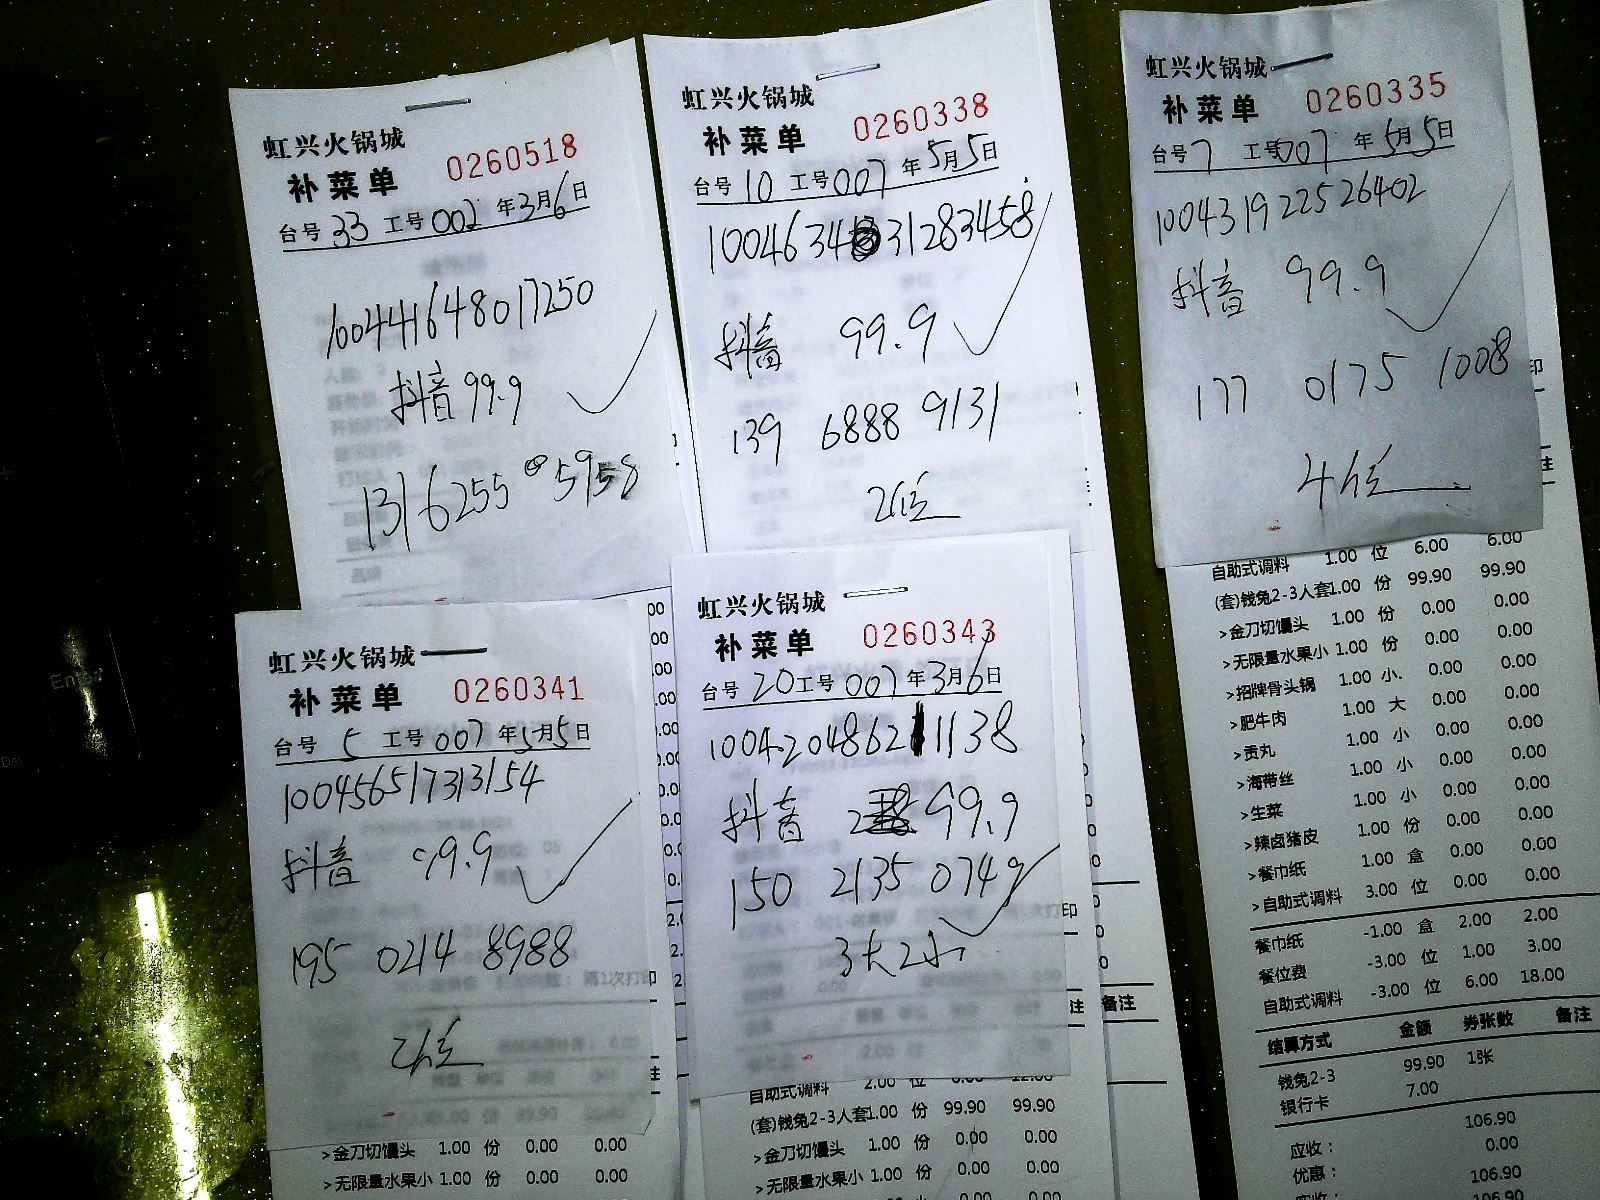 虹兴火锅城
补菜单 0260518
台号 33 工号 002 年 3月 6日
100441648017250
抖音 99.9
1316255 5958
虹兴火锅城
补菜单 0260338
台号 10 工号 007 年 5月 5日
1004634 31283458
抖音 99.9
139 6888 9131
2位
虹兴火锅城
补菜单 0260335
台号 7 工号 007 年 5月 5日
100431922526402
抖音 99.9
177 0175 1008
4位
自助式调料 1.00 位 6.00 6.00
(套)钱兔2-3人套1.00 份 99.90 99.90
>金刀切馒头 1.00 份 0.00 0.00
>无限量水果小 1.00 份 0.00 0.00
>招牌骨头锅 1.00 小. 0.00 0.00
>肥牛肉 1.00 大 0.00 0.00
>贡丸 1.00 小 0.00 0.00
>海带丝 1.00 小 0.00 0.00
>生菜 1.00 小 0.00 0.00
>辣卤猪皮 1.00 份 0.00 0.00
>餐巾纸 1.00 盒 0.00 0.00
>自助式调料 3.00 位 0.00 0.00
餐巾纸 -1.00 盒 2.00 2.00
餐位费 -3.00 位 1.00 3.00
自助式调料 -3.00 位 6.00 18.00
结算方式 金额 券张数 备注
钱兔2-3 99.90 1张
银行卡 7.00
应收： 106.90
优惠： 0.00
106.90
虹兴火锅城
补菜单 0260341
台号 5 工号 007 年 5月 5日
100456517313154
抖音 99.9
195 0214 8988
2位
>金刀切馒头 1.00 份 0.00 0.00
>无限量水果小 1.00 份 0.00 0.00
虹兴火锅城
补菜单 0260343
台号 20 工号 007 年 3月 6日
1004204862 1138
抖音 99.9
150 2135 0749
3大2小
备注
自助式调料 2.00 位 12.00
(套)钱兔2-3人套1.00 份 99.90 99.90
>金刀切馒头 1.00 份 0.00 0.00
>无限量水果小 1.00 份 0.00 0.00